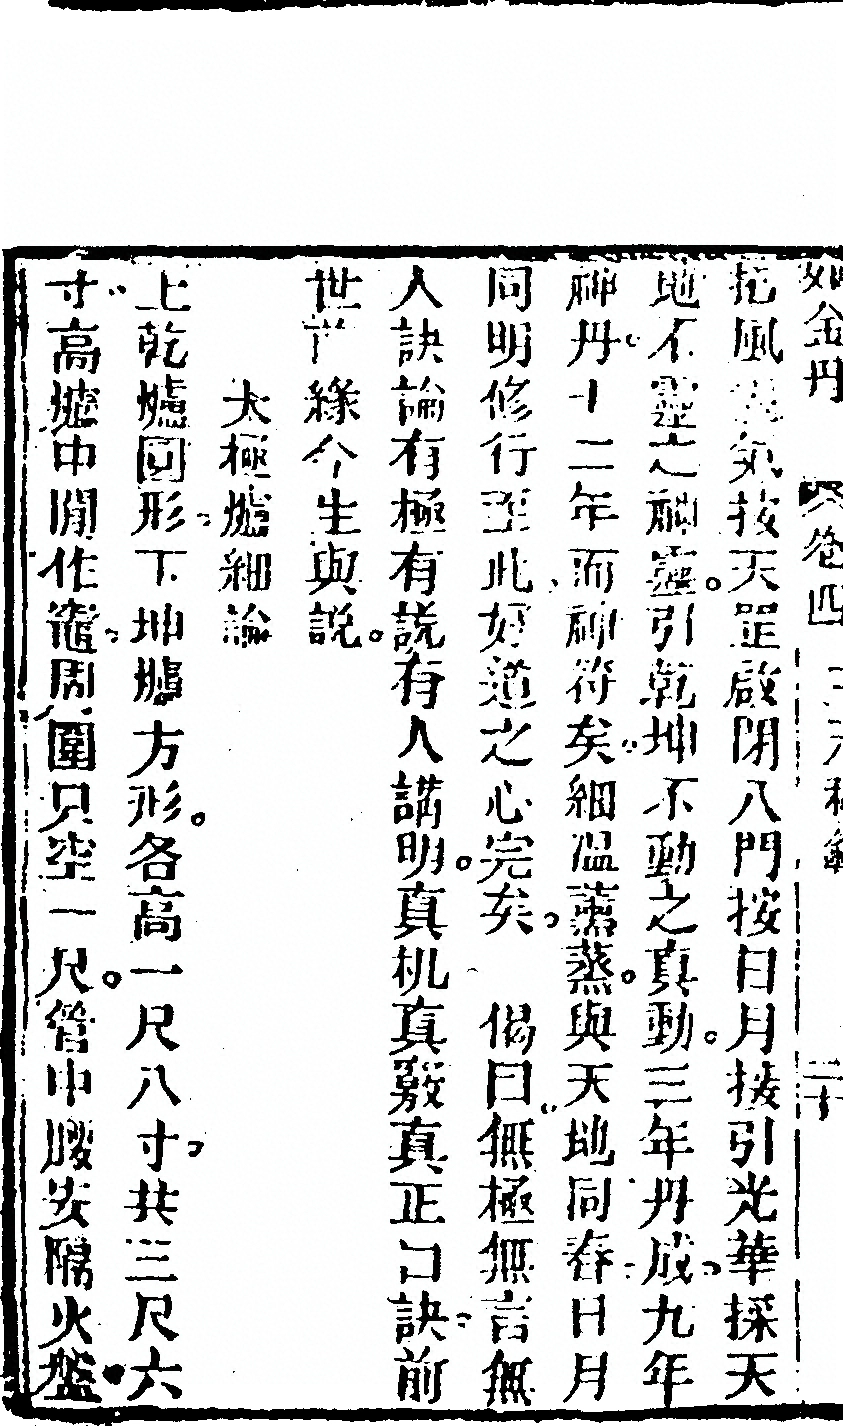 金丹 卷四 二十
風 氣按天罡啟閉八門按日月接引光華採天
地不靈之神靈。引乾坤不動之真動。三年丹成。九年
神丹。十二年而神符矣。細溫薰蒸。與天地同春。日月
同明。修行至此。好道之心完矣。 偈曰。無極無言無
人訣。論有極有說有人講明。真机真竅真正口訣。前
世 緣今生與說。
太極爐細論
上乾爐圓形。下坤爐方形。各高一尺八寸。共三尺六
寸高。爐中間作竈。周圍只空一尺。管中腰安隔火盤。